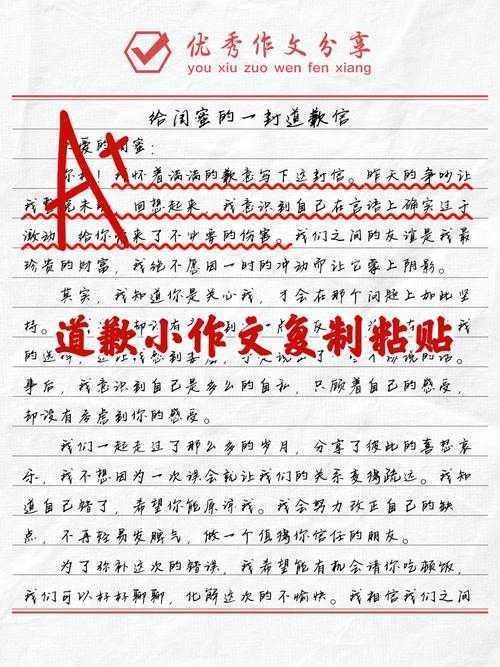 优秀作文分享
you xiu zuo wen fen xiang
给闺蜜的一封道歉信
A+
爱的闺蜜:
你好!我怀着满满的歉意写下这封信。昨天的争吵让
我整晚未 回想起来,我意识到自己在言语上确实过于
激动 给你带来了不必要的伤害。我们之间的友谊是我最
珍贵的财富,我绝不愿因一时的冲动而让它蒙上阴影。
其实,我知道你是关心我,才会在那个问题上如此坚
持。
道歉小作文复制粘贴
我的 话。
事后,我意识到自己是多么的自私,只顾着自己的感受,
却没有考虑到你的感受。
我们一起走过了那么多的岁月,分享了彼此的喜怒哀
乐,我不想因为一次误会就让我们的关系变得疏远。我知
道自己错了,希望你能原谅我。我会努力改正自己的缺
点,不再轻易发脾气,做一个值得你信任的朋友。
为了弥补这次的错误,我希望能有机会请你吃顿饭,
我们可以好好聊聊,化解这次的不愉快。我相信我们之间